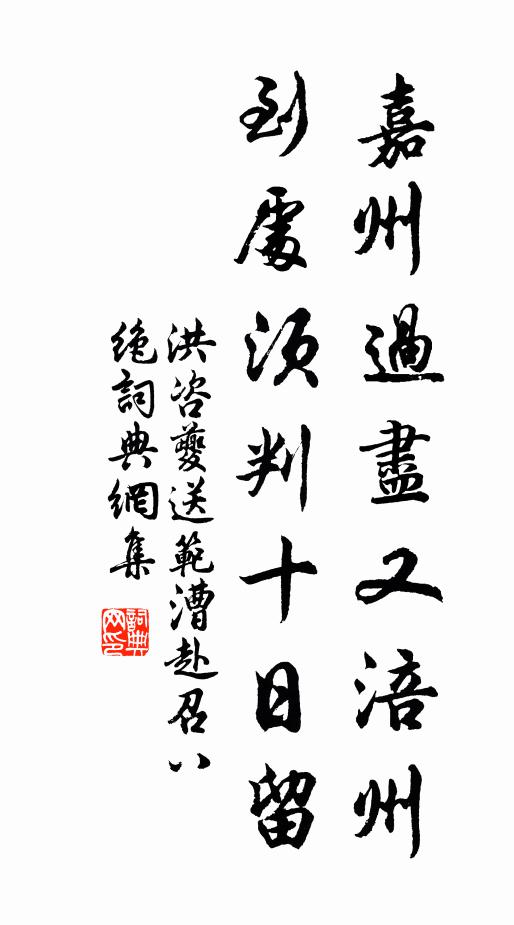 嘉州過盡又涪州
到處須判十日留
洪咨夔送範漕赴召八
絶詞典網集
詞典網印